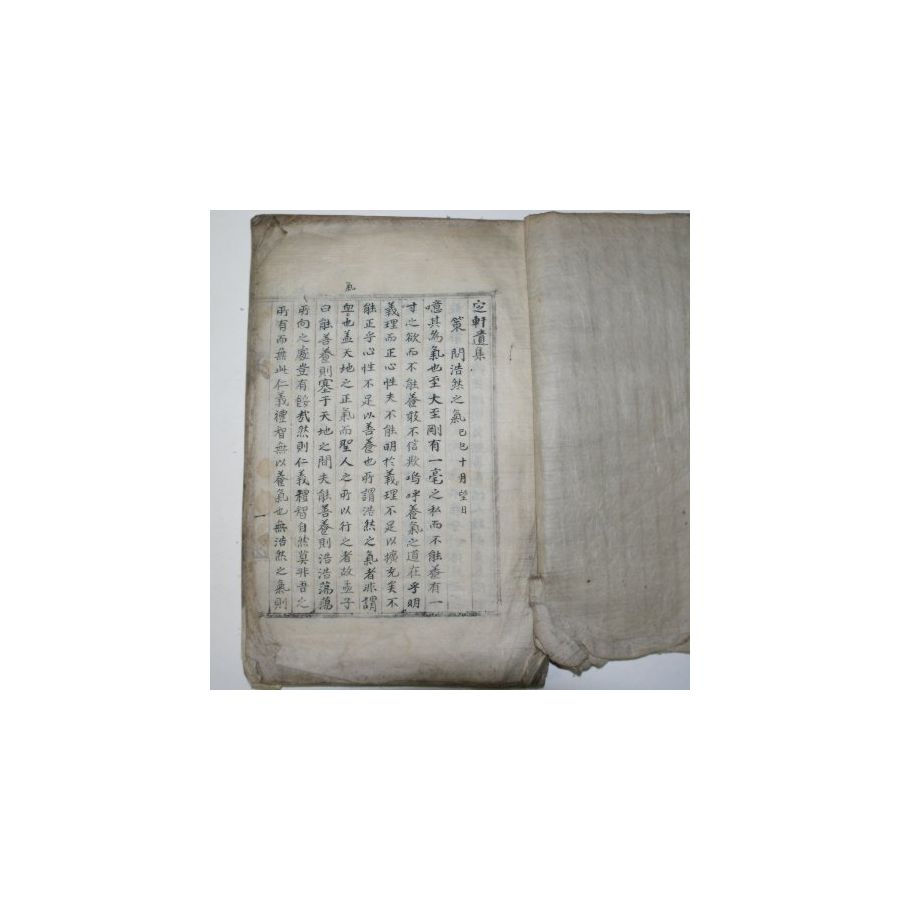 定軒遺集
策 問浩然之氣 己巳十月望日
噫其爲氣也至大至剛有一毫之私而不能養有一
寸之欲而不能養敢不信欺嗚呼養氣之道在乎明
義理而正心性夫不能明於義理不足以擴充矣不
能正乎心性不足以善養也所謂浩然之氣者非謂
氣
也盖天地之正氣而聖人之所以行之者故孟子
曰能善養則塞于天地之間夫能善養則浩浩蕩蕩
所向之處豈有餒哉然則仁義禮智自然莫非吾之
所有而無此仁義禮智無以養氣也無浩然之氣則